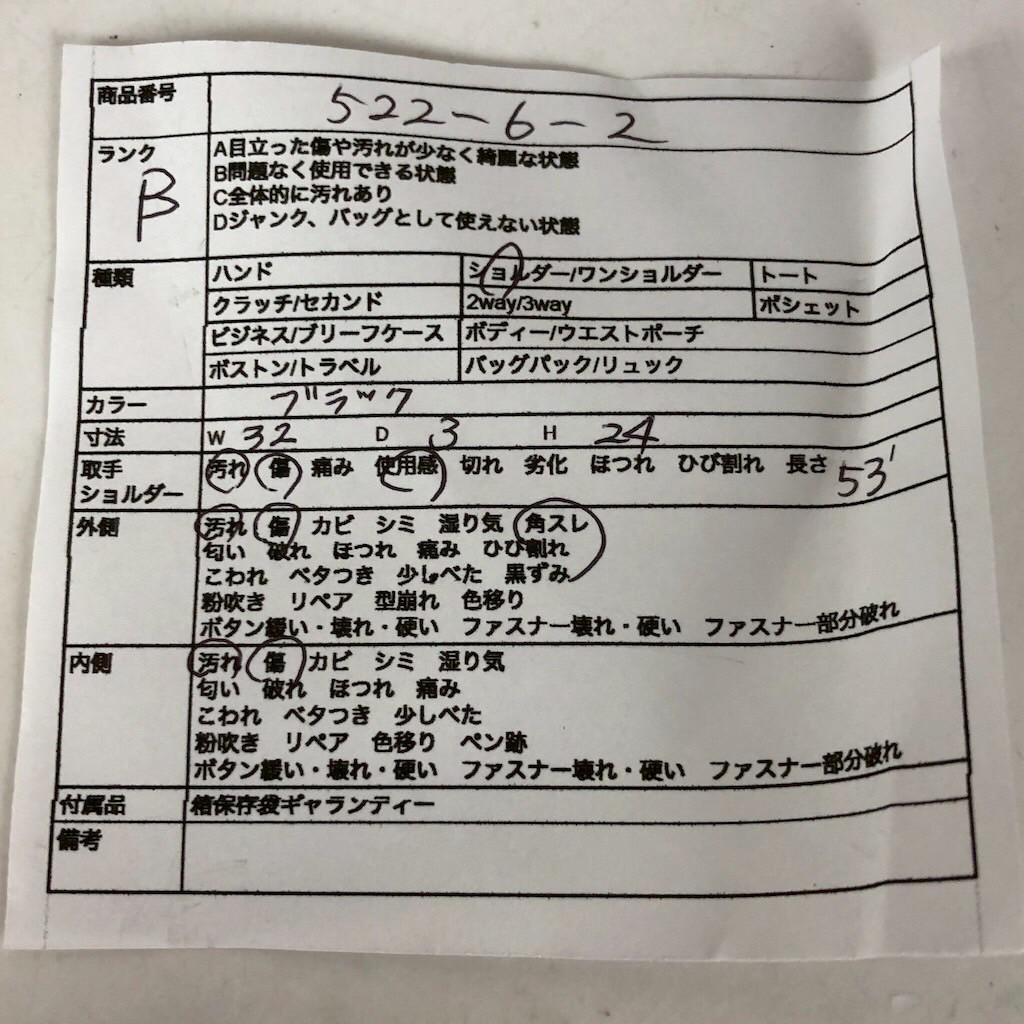 商品番号 522-6-2
ランク B
A目立った傷や汚れが少なく綺麗な状態
B問題なく使用できる状態
C全体的に汚れあり
Dジャンク、バッグとして使えない状態
種類 ハンド ショルダー/ワンショルダー トート
クラッチ/セカンド 2way/3way ポシェット
ビジネス/ブリーフケース ボディー/ウエストポーチ
ボストン/トラベル バッグパック/リュック
カラー ブラック
寸法 W 32 D 3 H 24
取手 汚れ 傷 痛み 使用感 切れ 劣化 ほつれ ひび割れ 長さ 53
ショルダー
外側 汚れ 傷 カビ シミ 湿り気 角スレ
匂い 破れ ほつれ 痛み ひび割れ
こわれ ベタつき 少しべた 黒ずみ
粉吹き リペア 型崩れ 色移り
ボタン緩い・壊れ・硬い ファスナー壊れ・硬い ファスナー部分破れ
内側 汚れ 傷 カビ シミ 湿り気
匂い 破れ ほつれ 痛み
こわれ ベタつき 少しべた
粉吹き リペア 色移り ペン跡
ボタン緩い・壊れ・硬い ファスナー壊れ・硬い ファスナー部分破れ
付属品 箱保存袋ギャランティー
備考